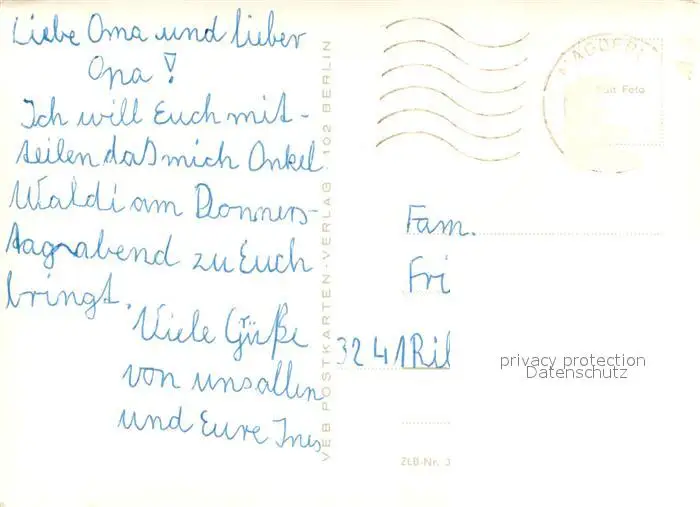 Liebe Oma und lieber
Opa!
Ich will Euch mit-
teilen daß mich Onkel
Waldi am Donners-
tagabend zu Euch
bringt.
Viele Güße
von uns allen
und Eure Ines
VEB POSTKARTEN-VERLAG 102 BERLIN
MAGDEBU
Echt Foto
Fam.
Fri
3241 Ril
privacy protection
Datenschutz
ZLB-Nr. 3